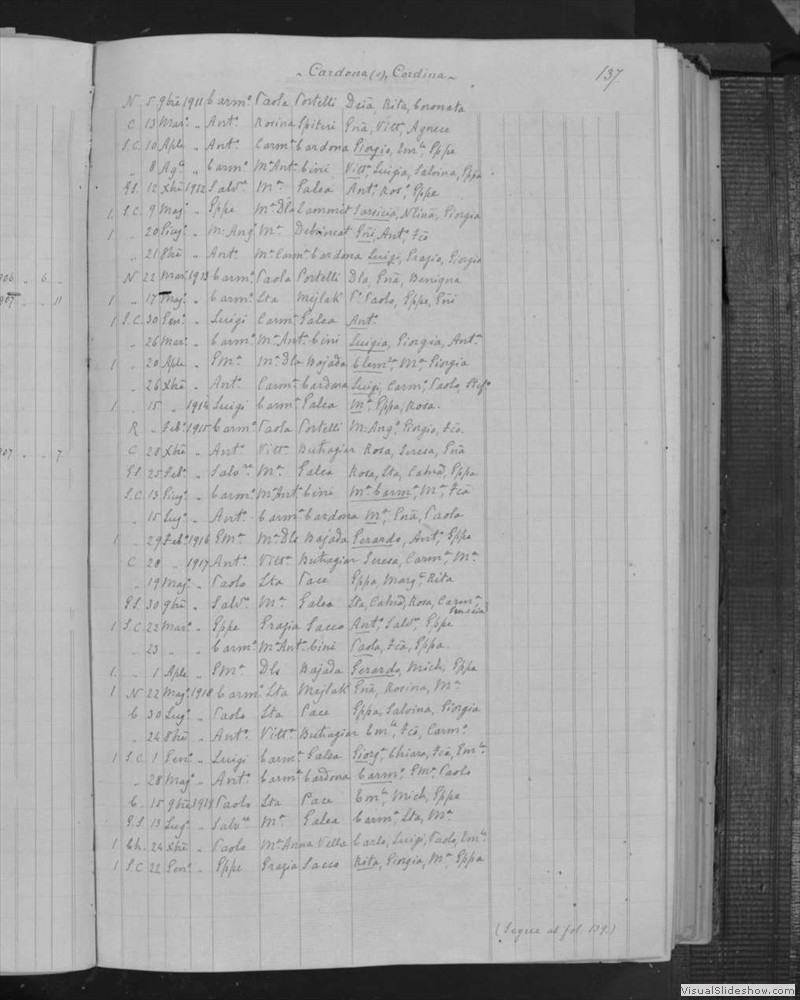 Cardona(s), Cordina
137
N 5 9bre 1911 Carmo Paola Portelli Dña, Rita, Coronata
C 13 Maro " Anto Rosina Spiteri Gña, Vitta, Agnese
S.C. 10 Aple " Anto Carma Cardona Giorgio, Emla, Gppe
" 8 Ago " Carmo Ma Anta Cini Vitta, Luigia, Salvina, Gppa
G.S. 12 Xbre 1912 Salvre Ma Galea Anto, Roso, Gppe
1 S.C. 9 Mago " Gppe Ma Dla Giorgia
1 " 20 Giug " M: Ango Ma Gñi, Anto, Fco
" 21 8bre " Anto Ma Carma Cardona Luigi, Grazio, Giorgio
N 22 Maro 1913 Carmo Paola Portelli Dla, Gña, Benigna
1 " 17 Mago " Carmo Sta Mejlak Po Paolo, Gppe, Gñi
1 S.C. 30 Geno " Luigi Carma Galea Anta
" 26 Maro " Carmo Ma Anta Cini Luigia, Giorgia, Anta
1 " 20 Aple " Gma Ma Dla Bajada Clemte, Ma Giorgia
" 26 Xbre " Anto Carma Cardona Luigi, Carmo, Paolo
1 " 15 " 1914 Luigi Carma Galea Ma, Gppa, Rosa.
R " Febo 1915 Carmo Paola Portelli M: Ango, Giorgio, Fco
C 28 Xbre " Anto Vitta Buttagiar Rosa, Teresa, Gña
G.S. 25 Febo " Salvre Ma Galea Rosa, Sta, Catña, Gppa
S.C. 13 Giugo " Carmo Ma Anta Cini Ma Carma, Ma, Fca
" 15 Lugo " Anto Carma Cardona Ma, Gña, Paola
1 " 29 Febo 1916 Gma Ma Dls Bajada Gerardo, Anto, Gppe
C 20 " 1917 Anto Vitta Buttagiar Teresa, Carma, Ma
" 19 Mago " Paolo Sta Pace Gppa, Marga, Rita
G.S. 30 9bre " Salvre Ma Galea Sta, Catña, Rosa, Carma
1 S.C. 22 Maro " Gppe Grazia Sacco Anto, Salvre, Gppe
" 23 " " Carmo Ma Anta Cini Paola, Fca, Gppa
1 " 1 Aple " Gma Dls Bajada Gerardo, Mich, Gppe
1 N 22 Mago 1918 Carmo Sta Mejlak Gña, Rosina, Ma
C 30 Lugo " Paolo Sta Pace Gppa, Salvina, Giorgia
" 24 8bre " Anto Vitta Buttagiar Emla, Fca, Carmo
1 S.C. 1 Geno " Luigi Carma Galea Giorga, Chiara, Fca, Emla
" 28 Mago " Anto Carma Cardona Carmo, Gma, Paolo
C 15 9bre 1919 Paolo Sta Pace Emla, Mich, Gppe
G.S. 13 Lugo " Salvre Ma Galea Carma, Sta, Ma
1 Ch. 24 Xbre " Paolo Ma Anna Vella Carlo, Luigi, Paolo, Emle
1 S.C. 22 Geno " Gppe Grazia Sacco Rita, Giorgia, Ma, Gppa
(Segue al fol. 139.)
906 " 6 "
907 " " 11
907 " " 7
VisualSlideshow.com